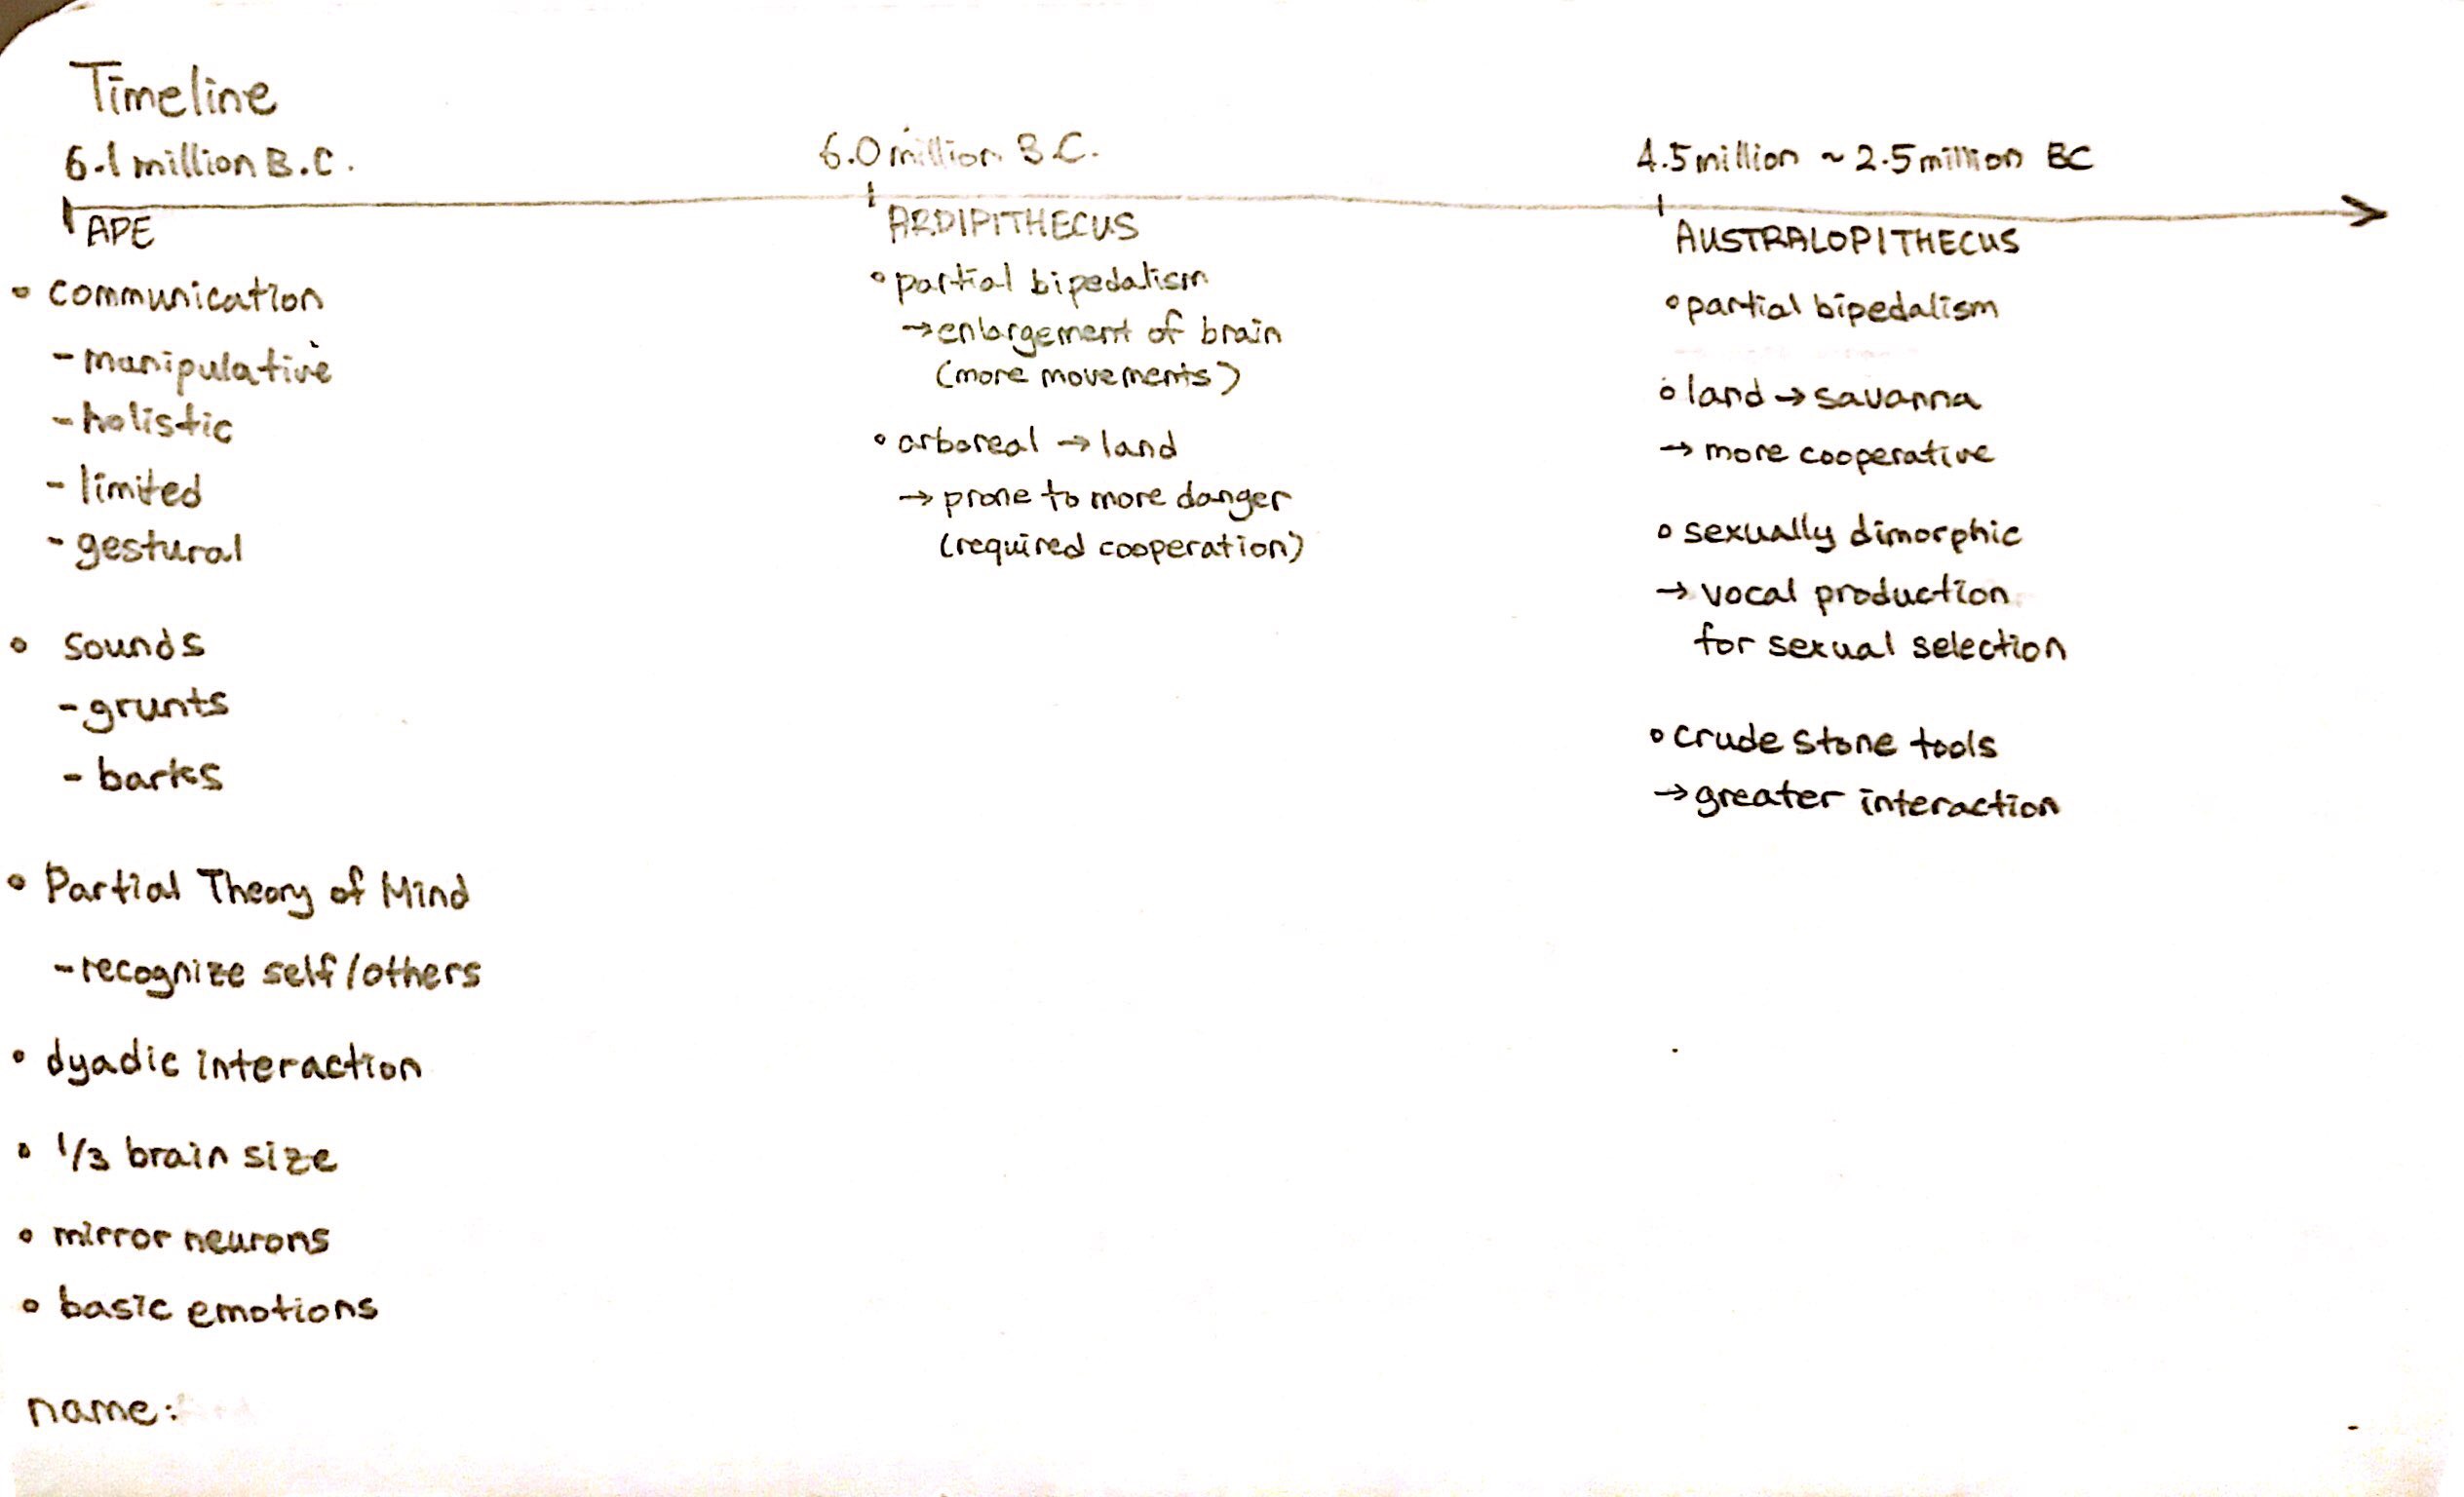 Timeline
6.1 million B.C.
6.0 million B.C.
4.5 million ~ 2.5 million BC
APE
• communication
- manipulative
- holistic
- limited
- gestural
• sounds
- grunts
- barks
• Partial Theory of Mind
- recognize self/others
• dyadic interaction
• 1/3 brain size
• mirror neurons
• basic emotions
name:
ARDIPITHECUS
• partial bipedalism
→ enlargement of brain
(more movements)
• arboreal → land
→ prone to more danger
(required cooperation)
AUSTRALOPITHECUS
• partial bipedalism
• land → savanna
→ more cooperative
• sexually dimorphic
→ vocal production
for sexual selection
• crude stone tools
→ greater interaction